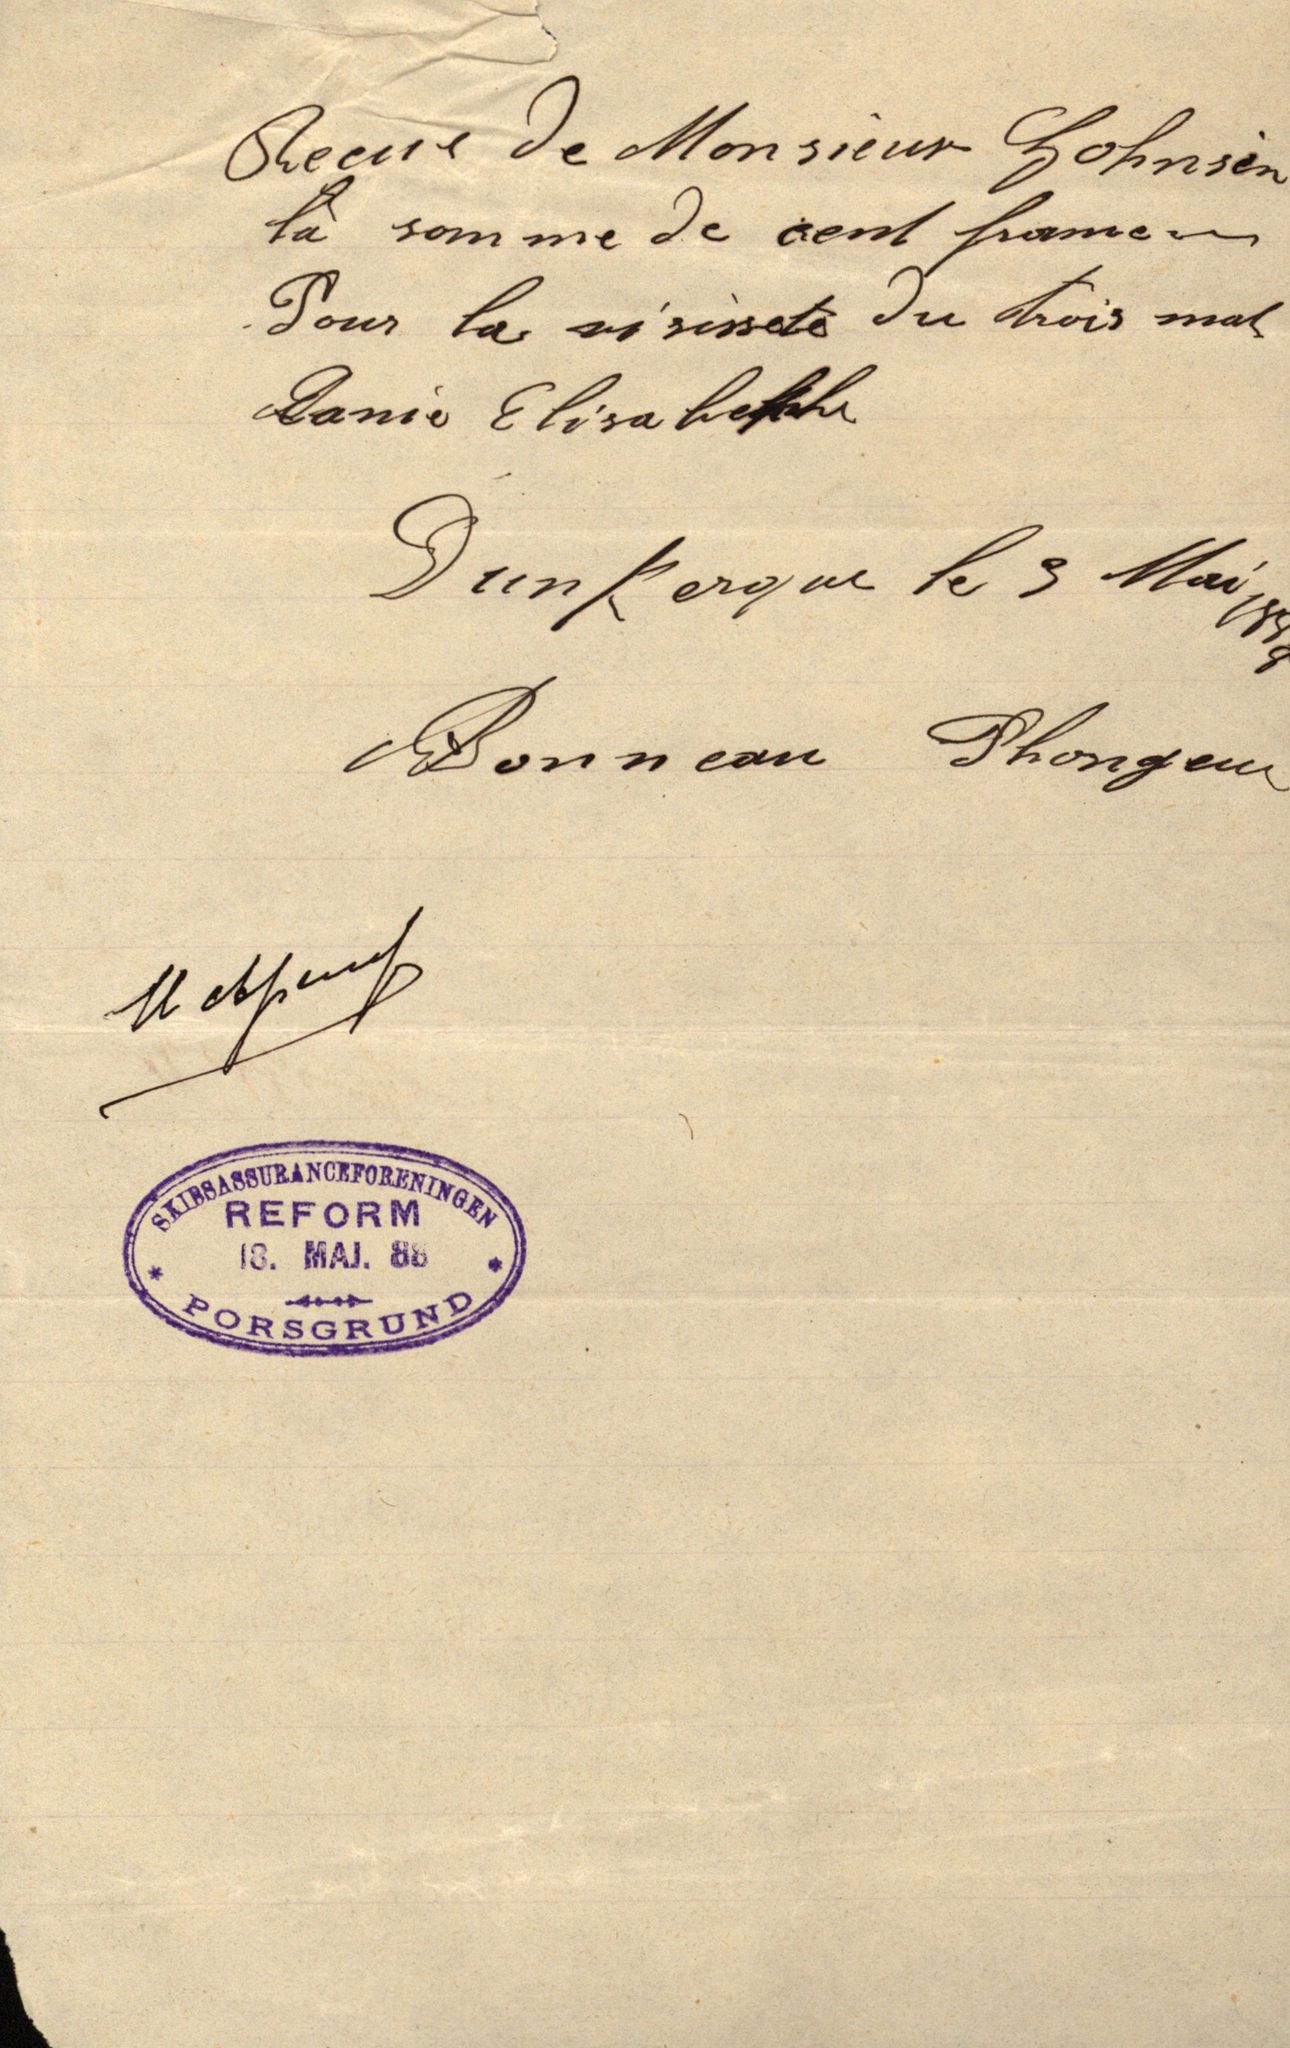 Recue de Monsieur Johnsen
la somme de cent franc
Pour la visissete du trois mat
Danie Elisabethe
Dunkerque le 9 Mai 1888
Bonneau Plongeur
SKIBSASSURANCEFORENINGEN
REFORM
18. MAI. 88
PORSGRUND